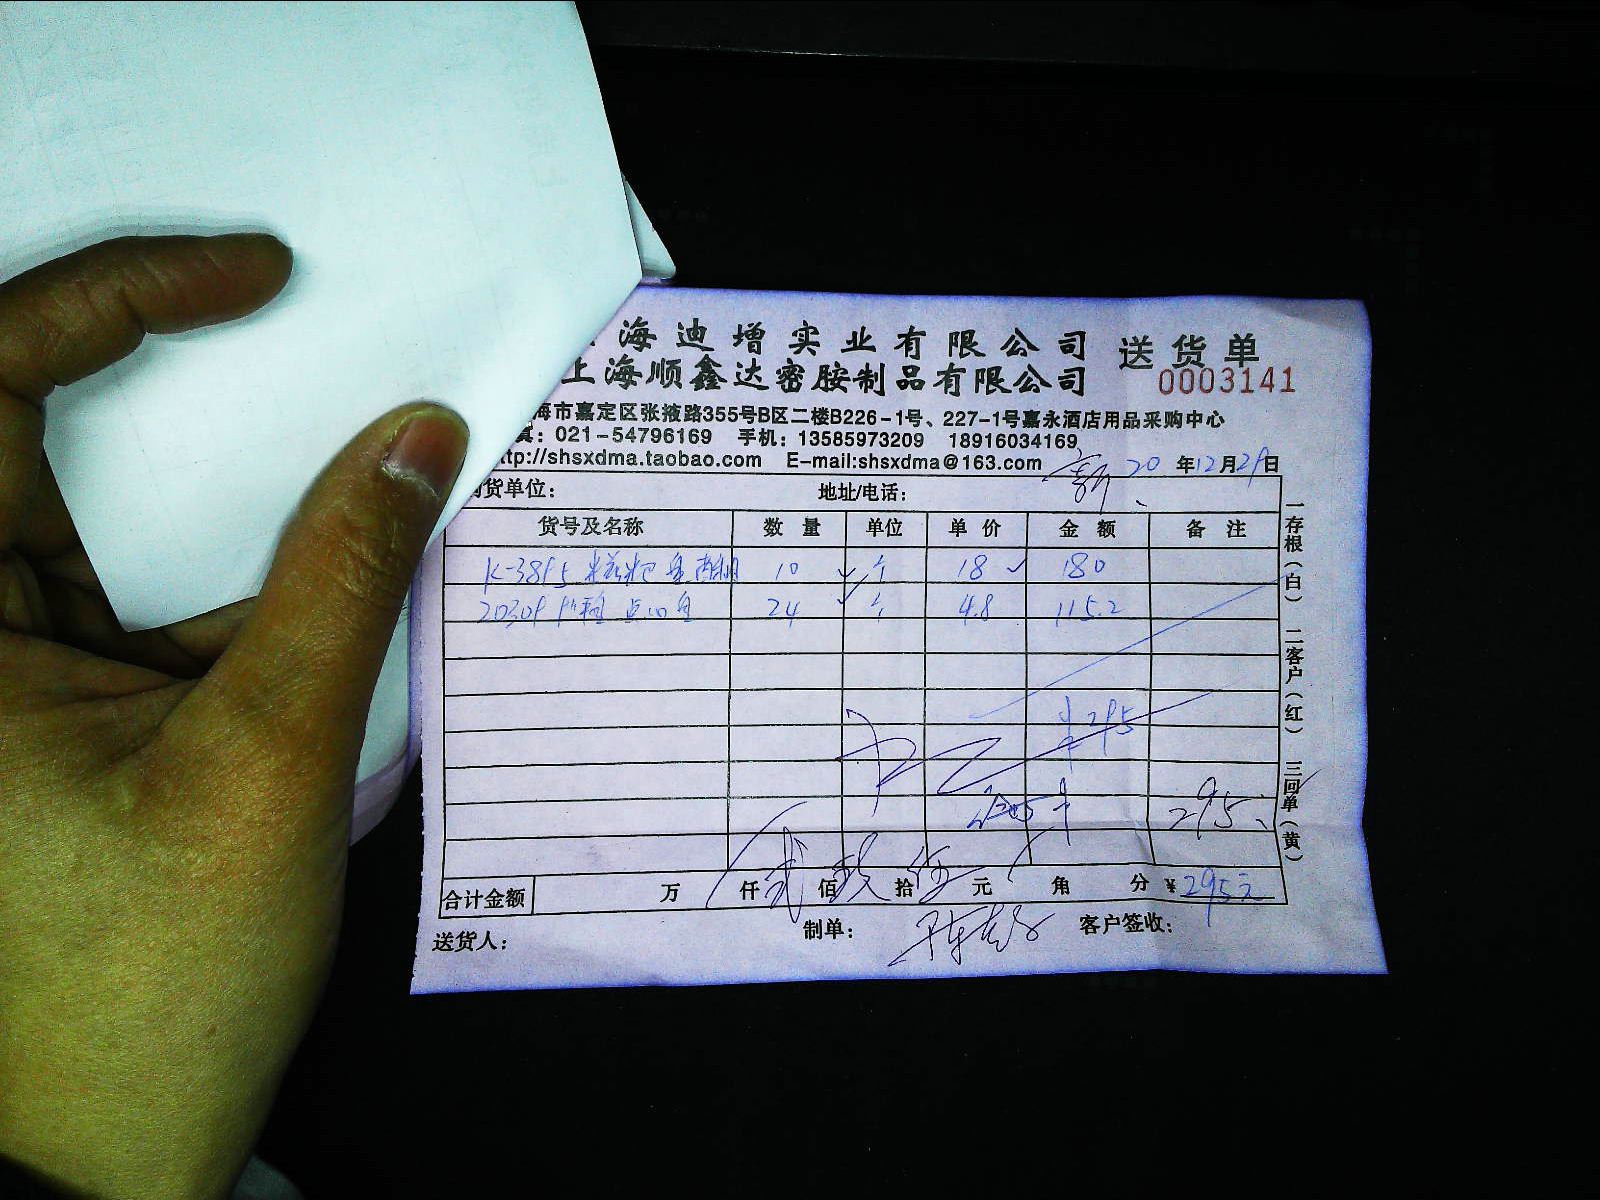 海迪增实业有限公司 送货单
上海顺鑫达密胺制品有限公司 0003141
海市嘉定区张掖路355号B区二楼B226-1号、227-1号嘉永酒店用品采购中心
真：021-54796169 手机：13585973209 18916034169
http://shsxdma.taobao.com E-mail:shsxdma@163.com 20 年12月29日
购货单位： 地址/电话：
货号及名称 数量 单位 单价 金额 备注
K-3895 糍粑盘 10 个 18 180
20309 点心盘 24 个 4.8 115.2
295
295
合计金额 万 仟 贰 佰 玖 拾 伍 元 角 分 ¥ 295元
送货人： 制单： 客户签收：
一存根（白） 二客户（红） 三回单（黄）